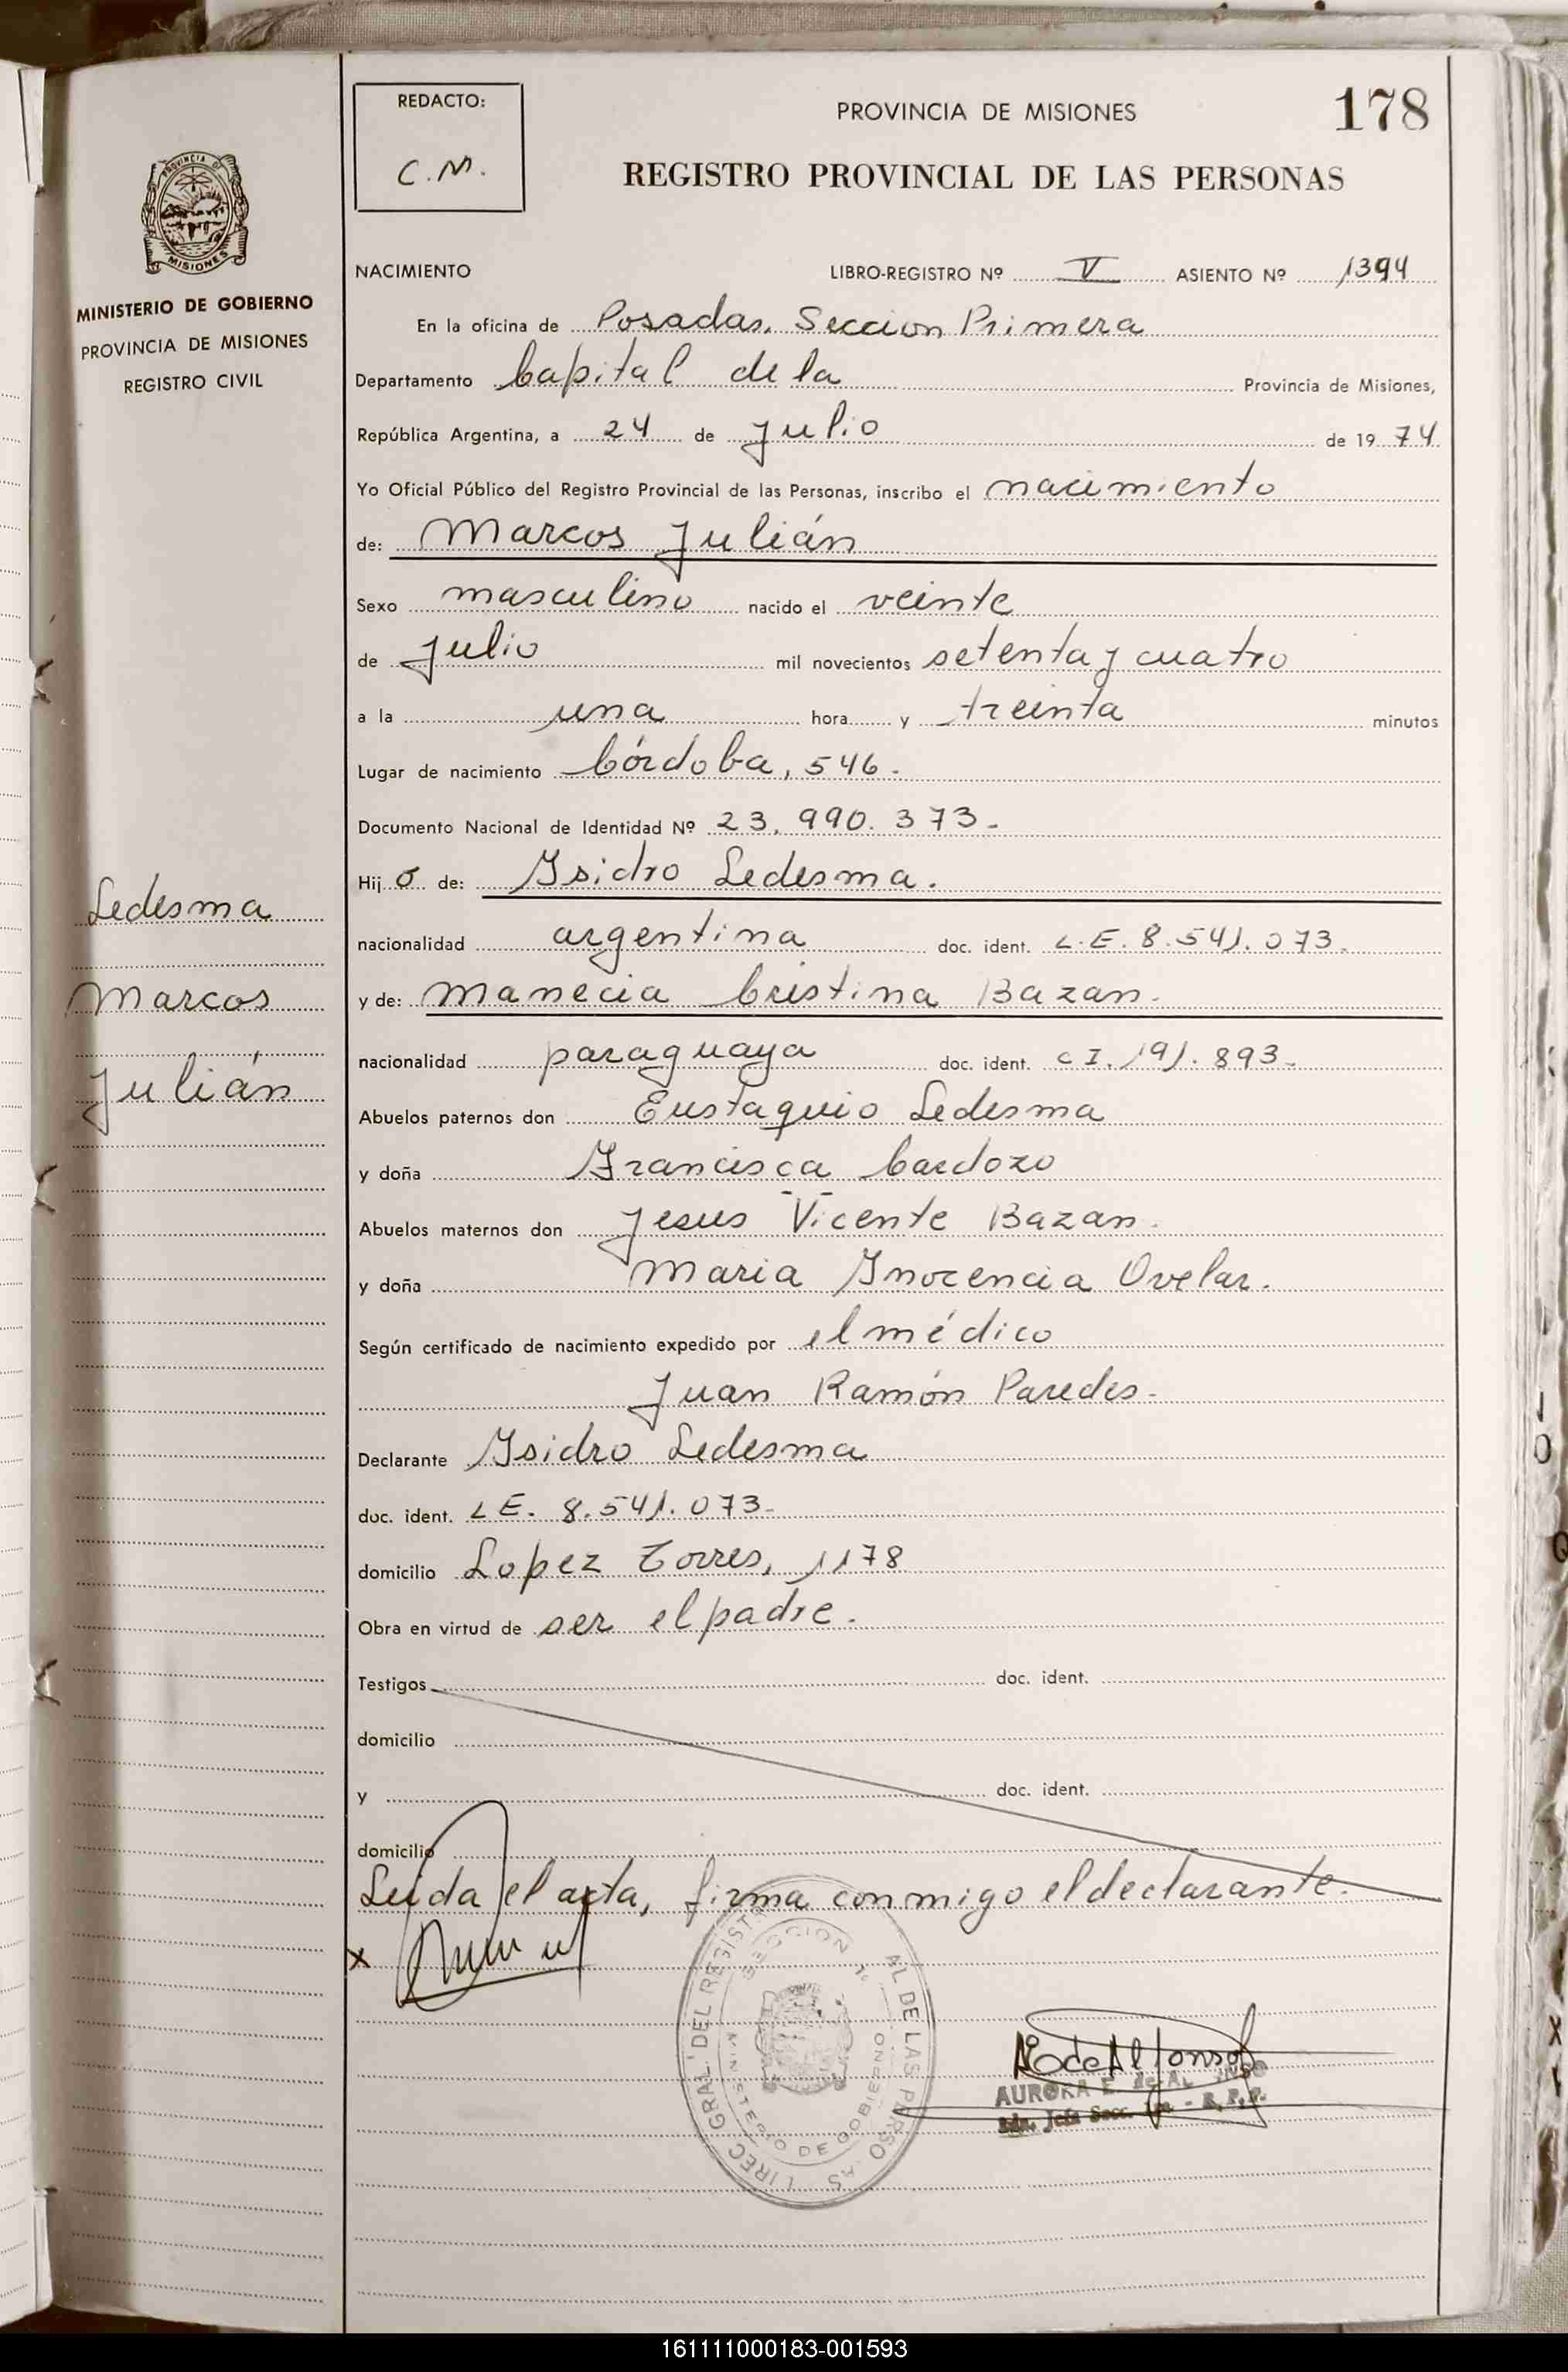 REDACTO:
C.M.
PROVINCIA DE MISIONES
178
REGISTRO PROVINCIAL DE LAS PERSONAS
PROVINCIA DE
MISIONES
MINISTERIO DE GOBIERNO
PROVINCIA DE MISIONES
REGISTRO CIVIL
NACIMIENTO LIBRO-REGISTRO Nº V ASIENTO Nº 1394
En la oficina de Posadas. Seccion Primera
Departamento Capital de la Provincia de Misiones,
República Argentina, a 24 de Julio de 1974
Yo Oficial Público del Registro Provincial de las Personas, inscribo el nacimiento
de: Marcos Julián
Sexo masculino nacido el veinte
de Julio mil novecientos setenta y cuatro
a la una hora y treinta minutos
Lugar de nacimiento Córdoba, 546.
Documento Nacional de Identidad Nº 23.990.373-
Hijo de: Isidro Ledesma.
nacionalidad argentina doc. ident. L.E. 8.541.073.
y de: Manecia Cristina Bazan.
nacionalidad paraguaya doc. ident. C I. 191.893-
Abuelos paternos don Eustaquio Ledesma
y doña Francisca Cardozo
Abuelos maternos don Jesus Vicente Bazan.
y doña Maria Inocencia Ovelar.
Según certificado de nacimiento expedido por el médico
Juan Ramón Paredes-
Declarante Isidro Ledesma
doc. ident. L E. 8.541.073-
domicilio Lopez Torres, 1178
Obra en virtud de ser el padre.
Testigos doc. ident.
domicilio
y doc. ident.
domicilio
Leída el acta, firma conmigo el declarante.
x
Ledesma
Marcos
Julián
SECCION 1a
MINISTERIO DE GOBIERNO
AURORA E. de ALFONSO
161111000183-001593